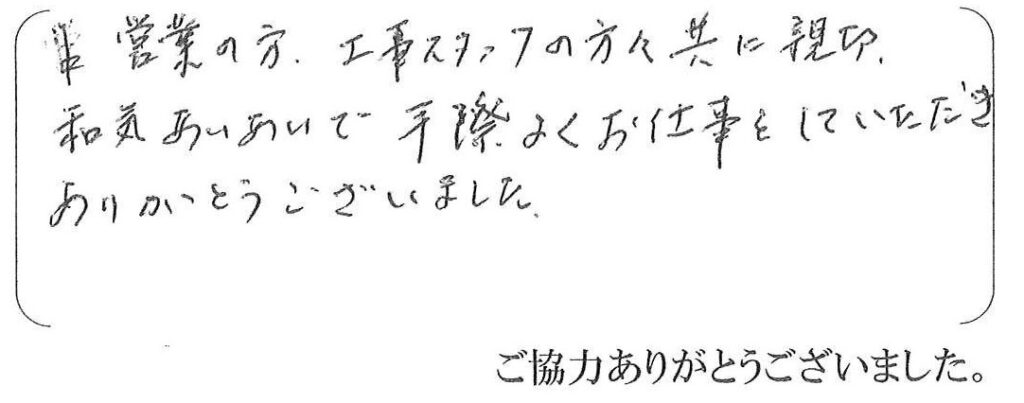 営業の方、工事スタッフの方々共に親切、
和気あいあいで手際よくお仕事をしていただき
ありがとうございました。
ご協力ありがとうございました。